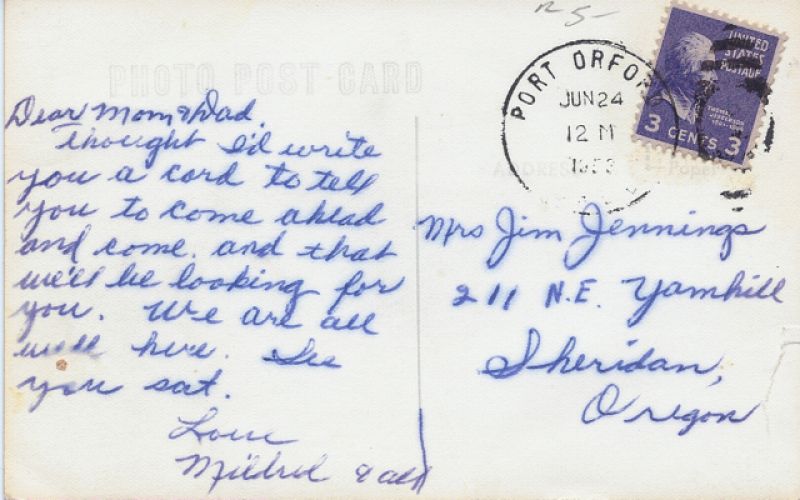 PHOTO POST CARD
Dear Mom & Dad.
Thought I'd write
you a card to tell
you to come ahead
and come. and that
we'll be looking for
you. We are all
well here. See
you sat.
Love
Mildred & all
PORT ORFORD
JUN 24
12 M
1953
UNITED
STATES
POSTAGE
THOMAS
JEFFERSON
3 CENTS 3
Mrs Jim Jennings
211 N.E. Yamhill
Sheridan,
Oregon